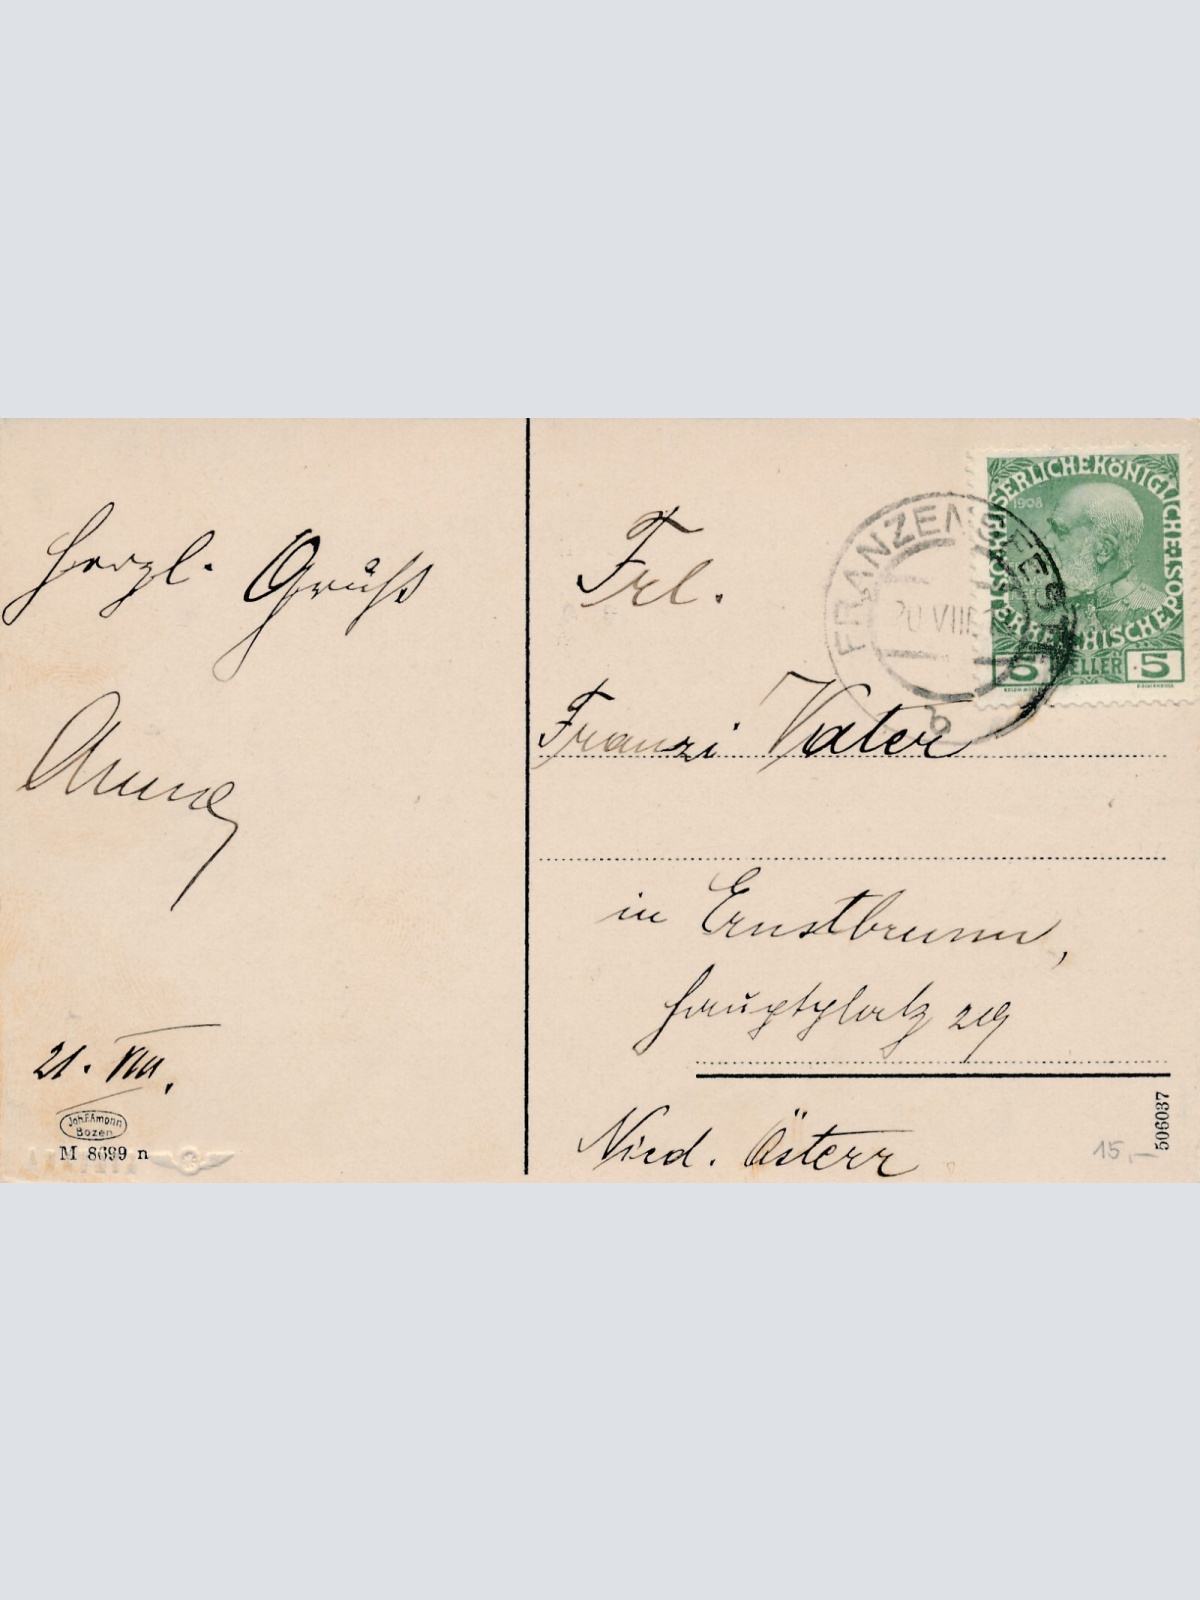 Herzl. Gruß
Anna
21. VIII.
Joh. F. Amonn
Bozen
M 8699 n
Frl.
Franzi Vater
in Ernstbrunn,
Hauptplatz 29
Nied. Österr
FRANZENSFESTE
20 VIII
b
KAISERLICHE KÖNIGLICHE
ÖSTERREICHISCHE POST
1908
5 HELLER 5
506037
15,-